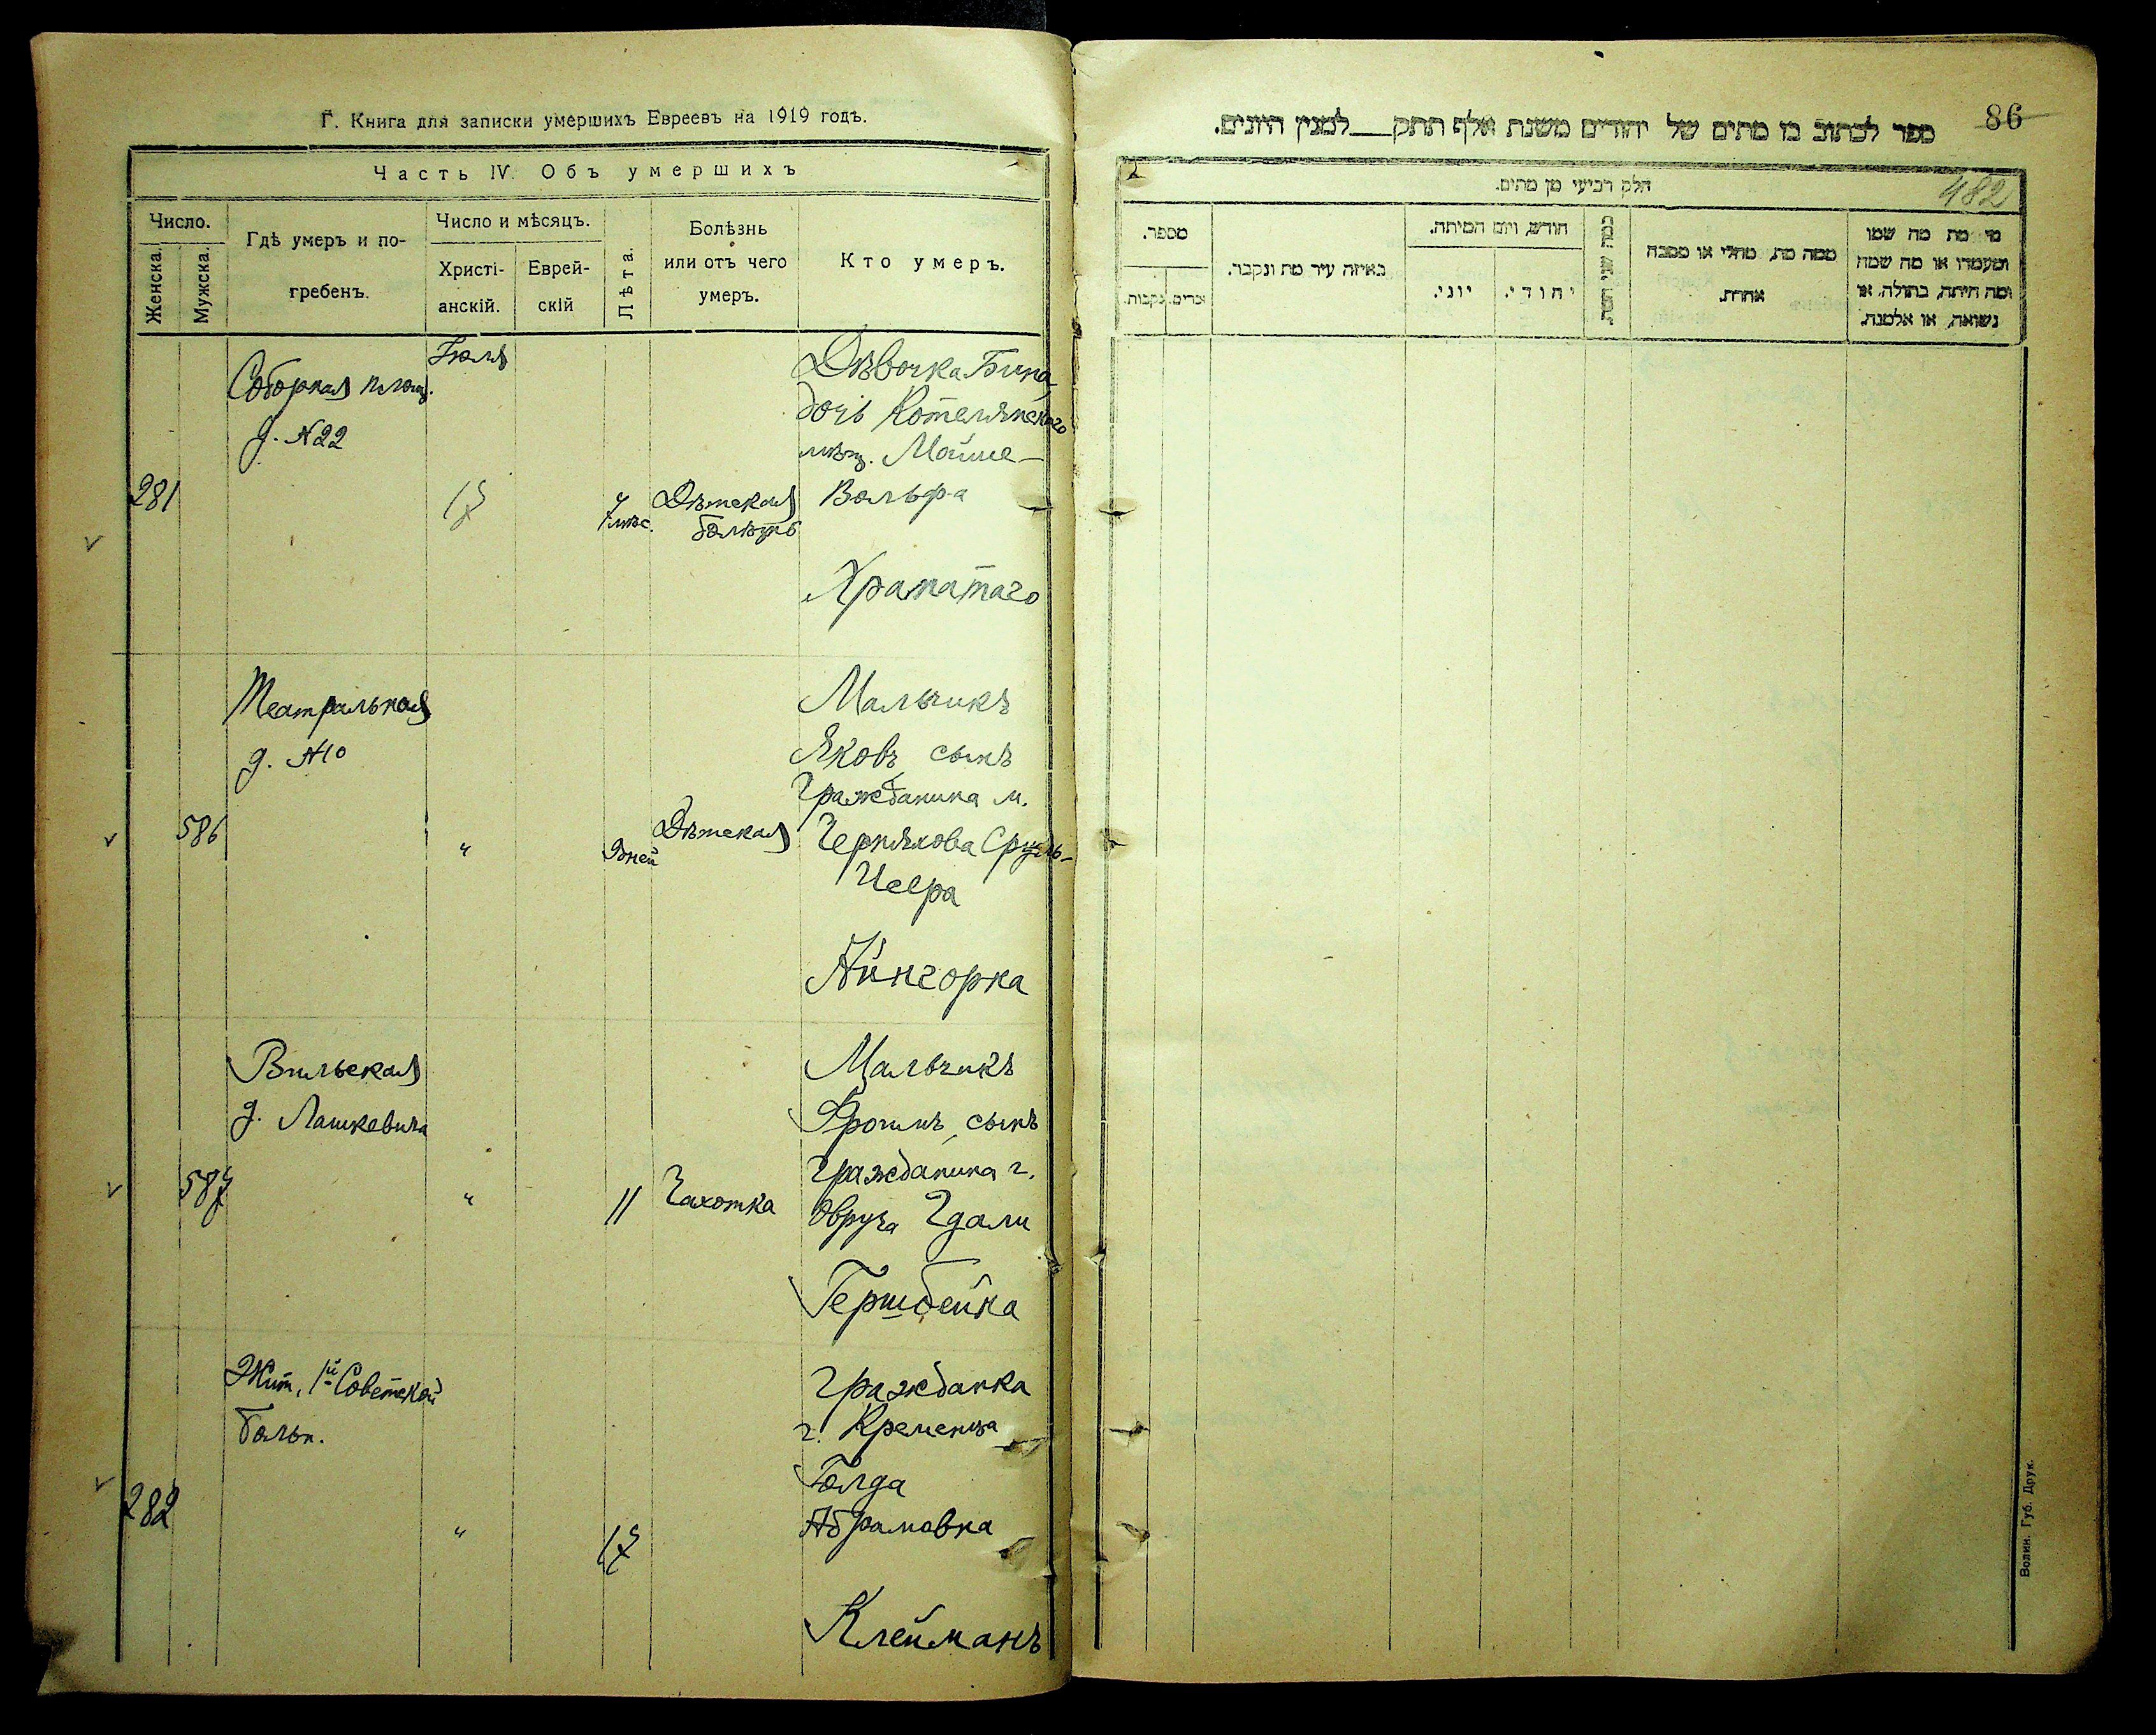 Г. Книга для записки умершихъ Евреевъ на 1919 годъ.
Часть IV. Объ умершихъ
Число.
Женска.
Мужска.
Гдѣ умеръ и по-
гребенъ.
Число и мѣсяцъ.
Христі-
анскій.
Еврей-
скій
Лѣта.
Болѣзнь
или отъ чего
умеръ.
Кто умеръ.
281
Соборная площ.
д. №22
Іюля
17
7 мѣс.
Дѣтская
болѣзнь
Дѣвочка Бина
дочь Котелянскаго
мѣщ. Мойше-
Вольфа
Храпатаго
586
Театральная
д. №10
"
9 дней
Дѣтская
Мальчикъ
Яковъ сынъ
Гражданина м.
Черняхова Сруль-
Исера
Айнгорна
587
Вильская
д. Лашкевича
"
11
Чахотка
Мальчикъ
Фроимъ сынъ
Гражданина г.
Овруча Гдали
Герштейна
282
Жит. 1й Советской
больн.
"
17
Гражданка
г. Кременца
Голда
Абрамовна
Клейманъ
86
ספר לכתוב בו מתים של יהודים משנת אלף תתק___למנין היונים.
482
חלק רביעי מן מתים.
מספר.
נקבות.
זכרים.
באיזה עיר מת ונקבר.
חודש, ויום המיתה.
יוני.
יהודי.
ממה מת, מחלי או מסבה
אחרת.
מי מת מה שמו
ומעמדו או מה שמה
ומה היתה, בתולה, או
נשואה, או אלמנה.
Волин. Губ. Друк.